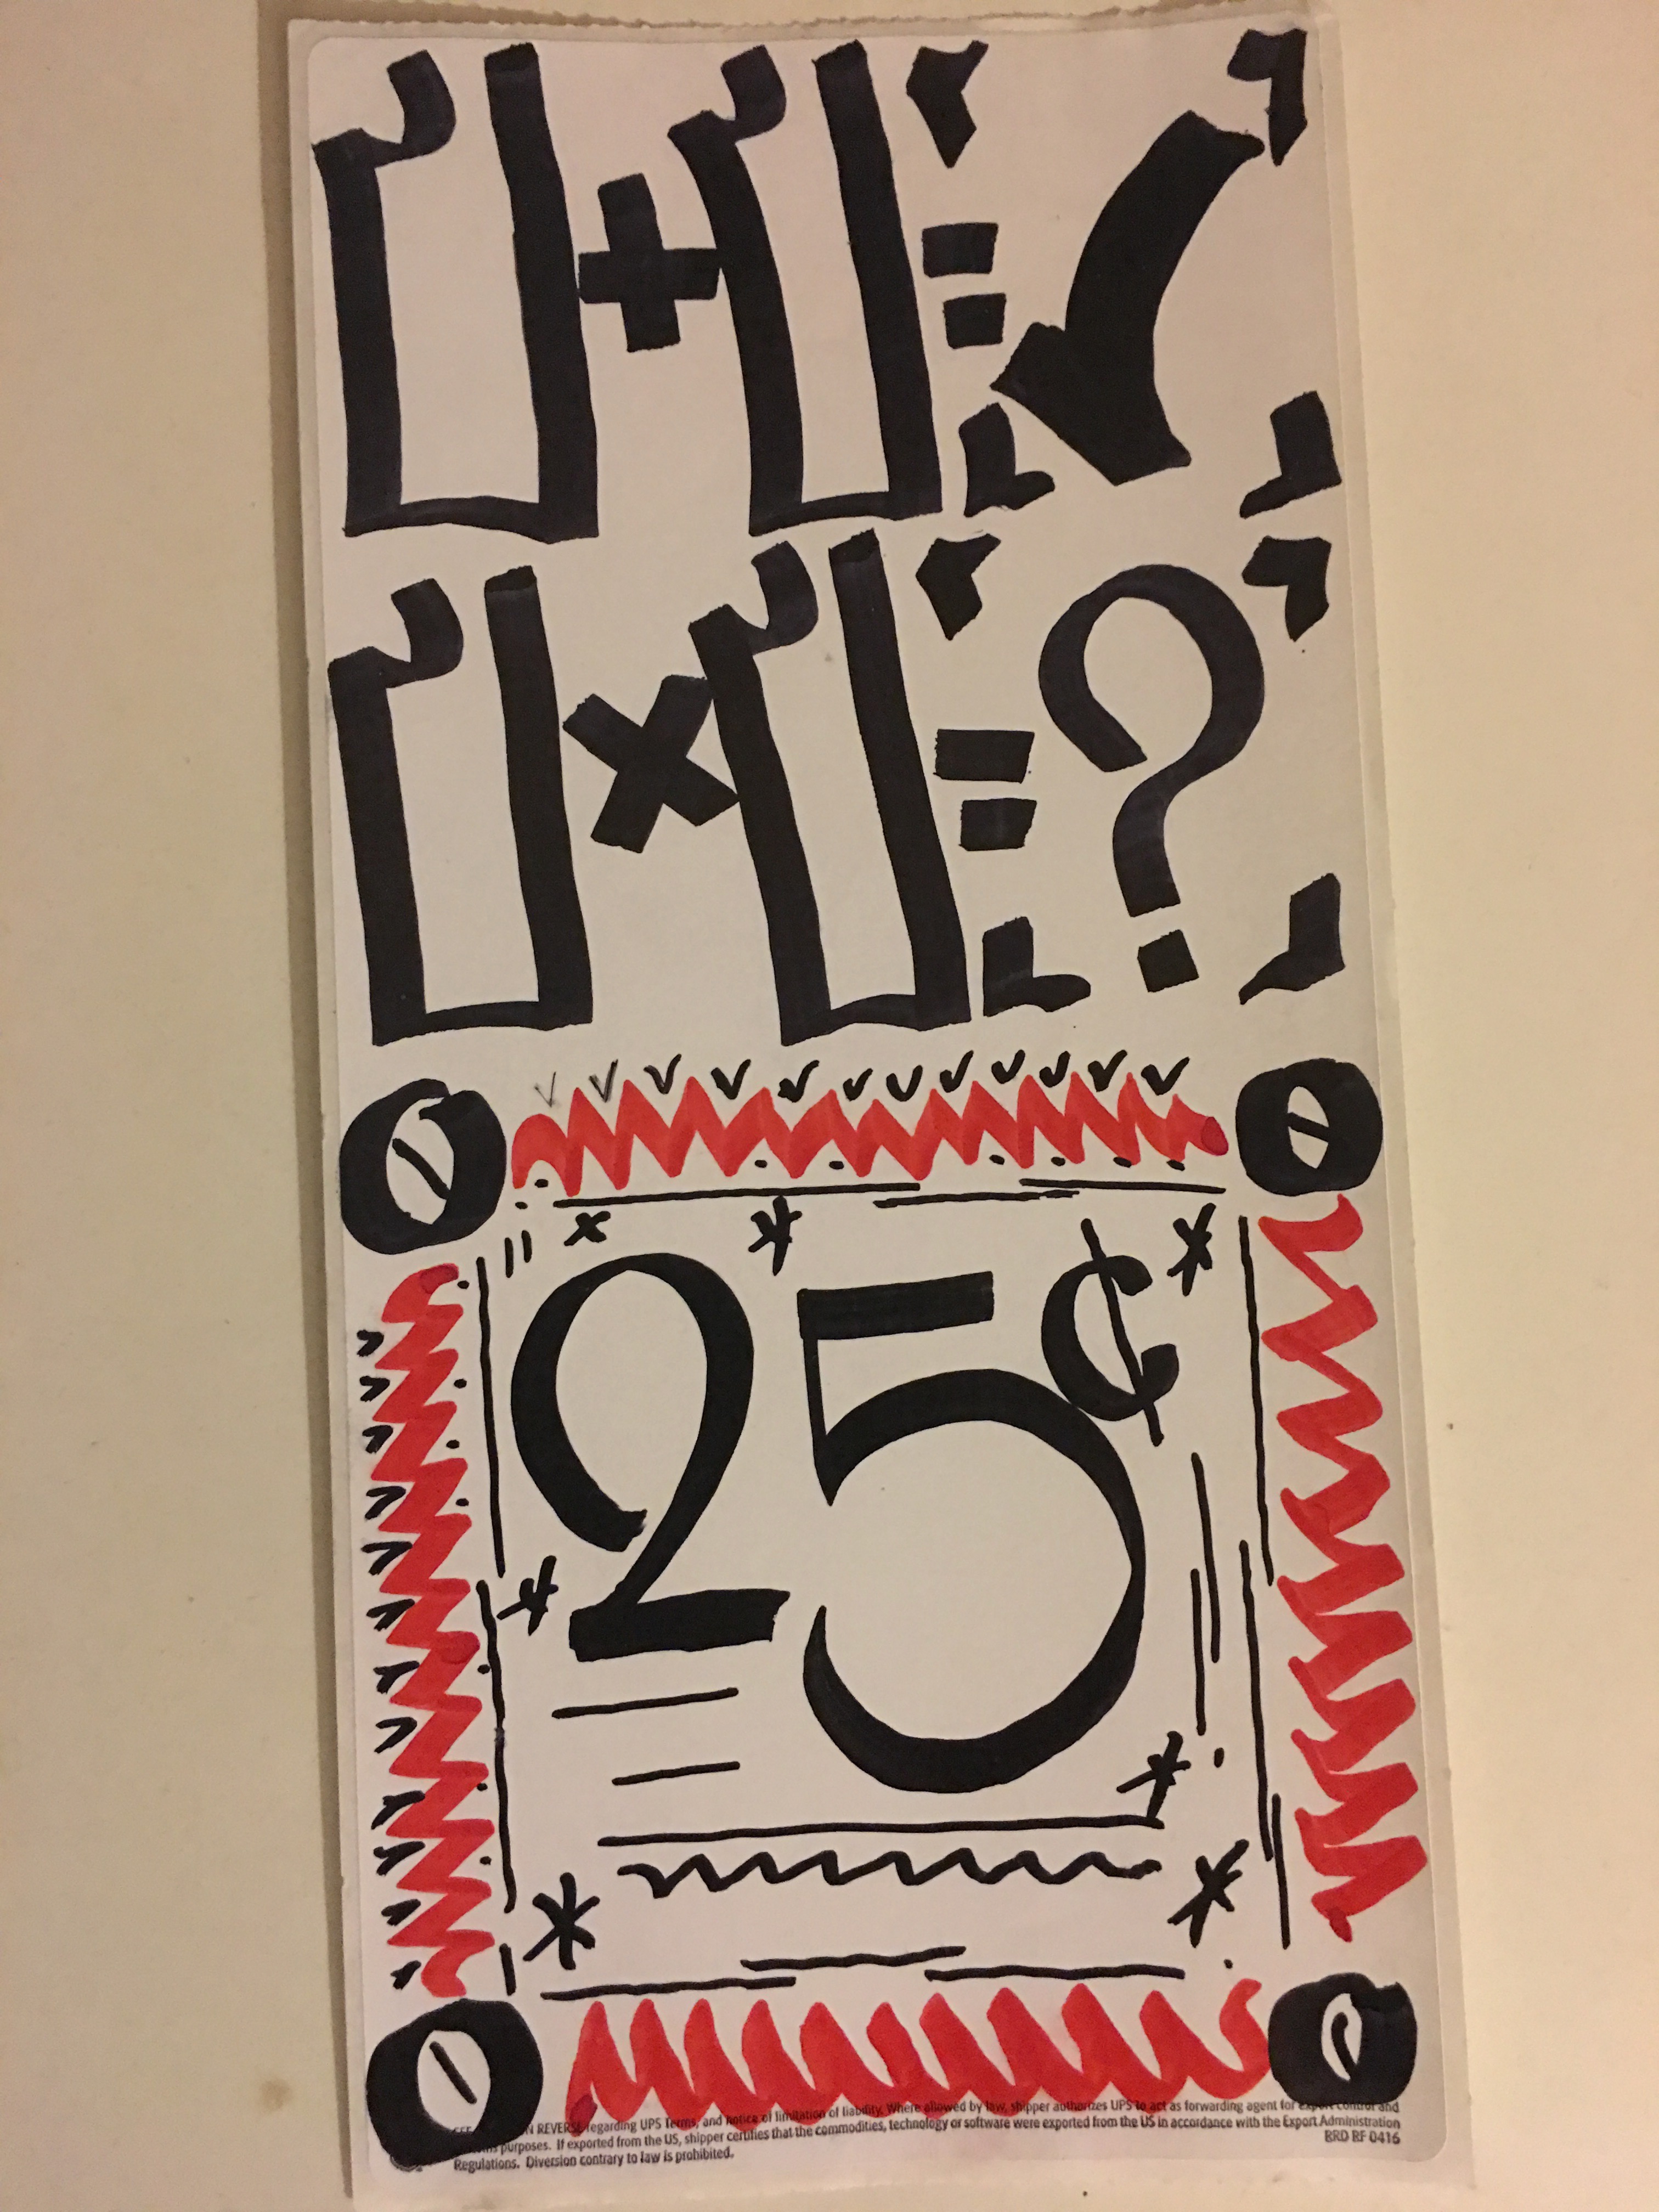 1+1=
1×1=?
25¢
REVERSE regarding UPS Terms, and notice of limitation of liability. Where allowed by law, shipper authorizes UPS to act as forwarding agent for export control and
purposes. If exported from the US, shipper certifies that the commodities, technology or software were exported from the US in accordance with the Export Administration
Regulations. Diversion contrary to law is prohibited.
BRD RF 0416